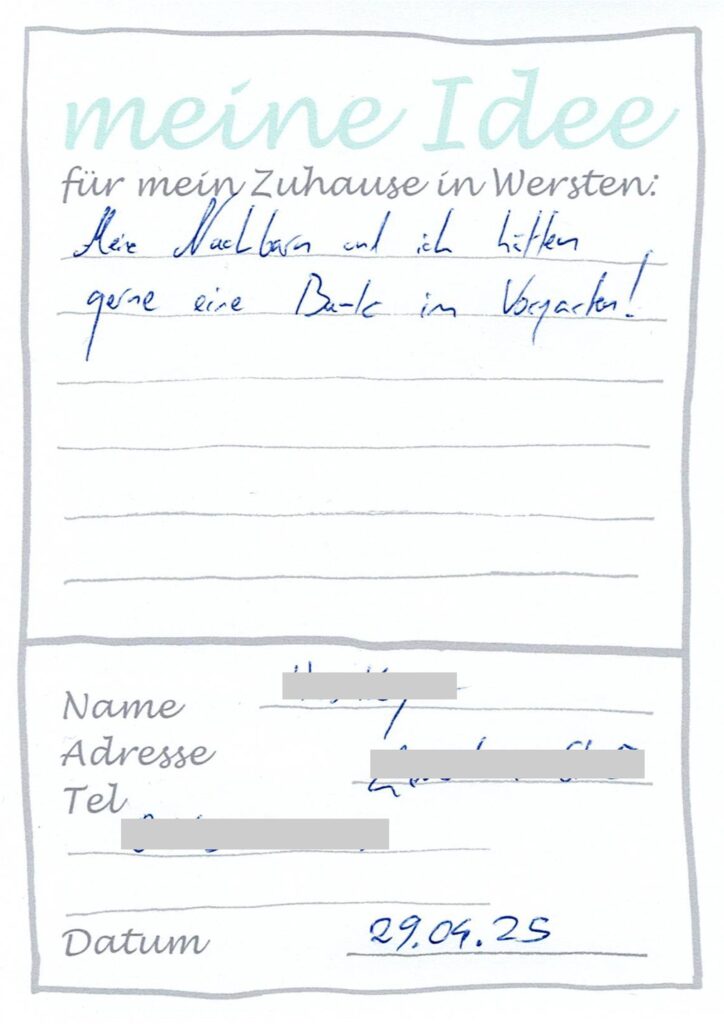 meine Idee
für mein Zuhause in Wersten:
Meine Nachbarn und ich hätten
gerne eine Bank im Vorgarten!
Name
Adresse
Tel
Datum 29.04.25